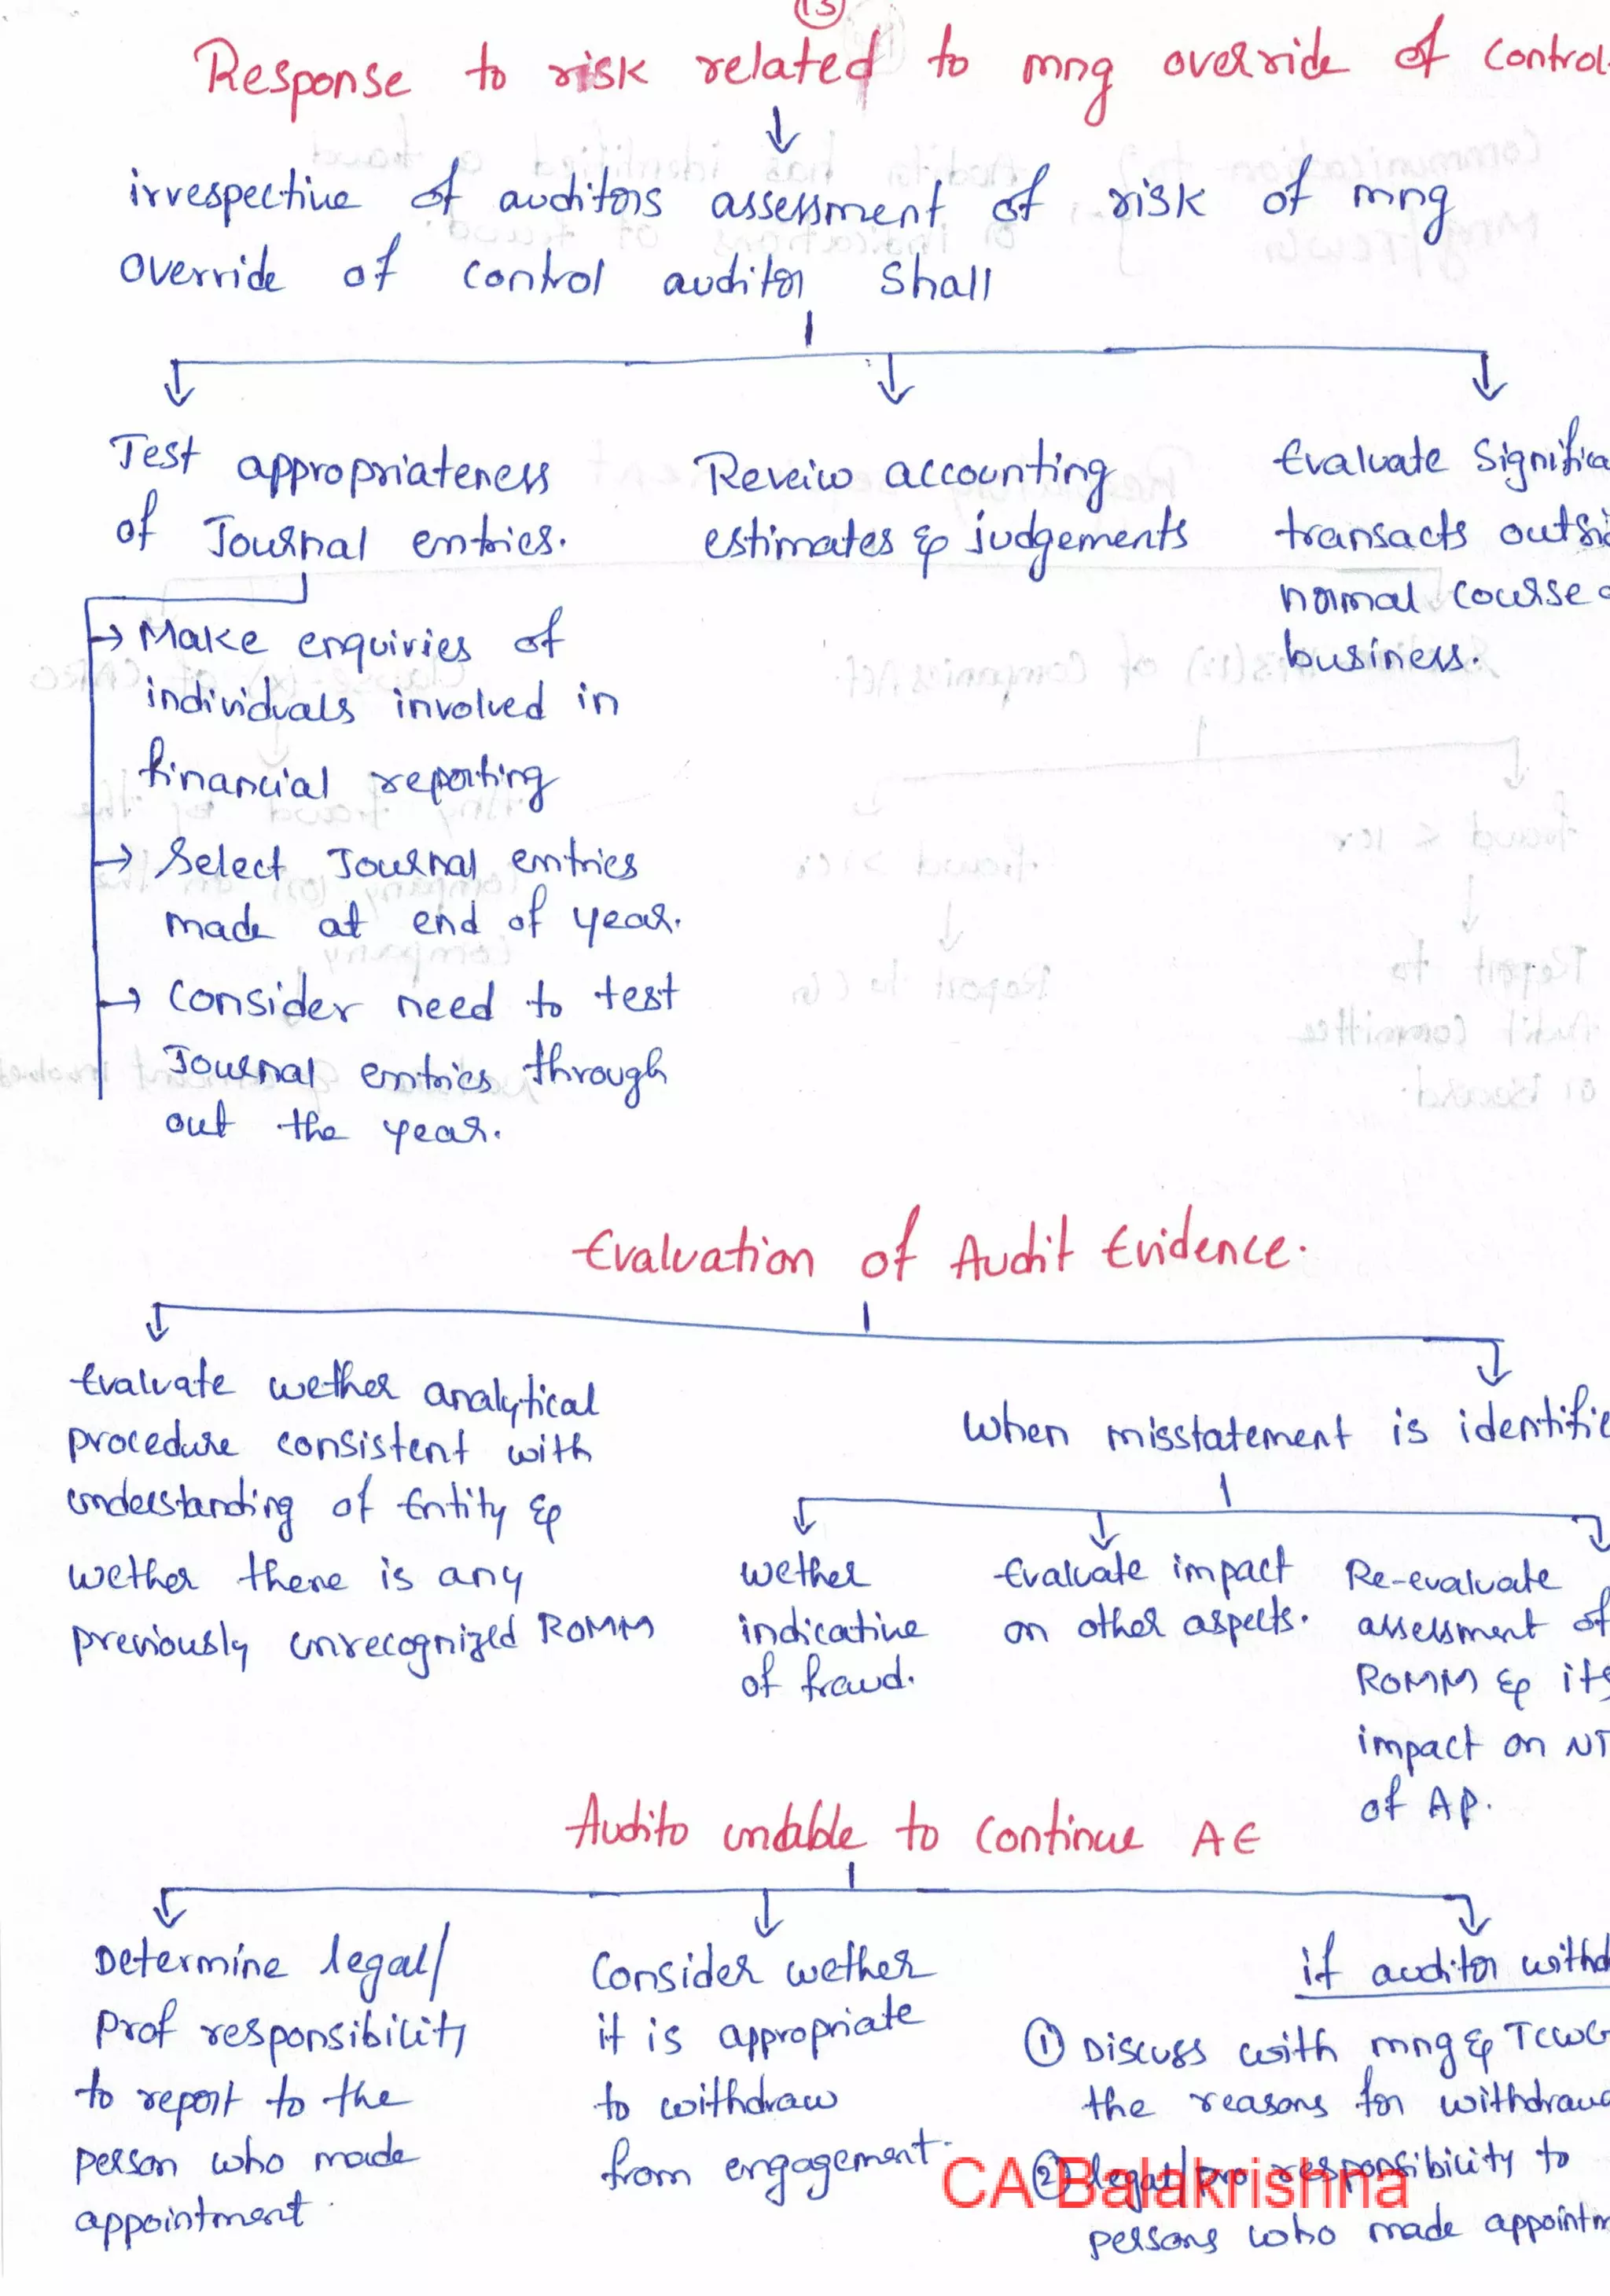 13
Response to risk related to mng override of control
irrespective of auditors assessment of risk of mng
override of control auditor shall
Test appropriateness
of Journal entries.
→ Make enquiries of
individuals involved in
financial reporting
→ Select Journal entries
made at end of year.
→ Consider need to test
Journal entries through
out the year.
Reveiw accounting
estimates & judgements
Evaluate Significa
transacts outsi
normal course o
business.
Evaluation of Audit Evidence.
Evaluate wether analytical
procedure consistent with
understanding of Entity &
wether there is any
previously unrecognized ROMM
When misstatement is identifie
wether
indicative
of fraud.
Evaluate impact
on other aspects.
Re-evaluate
assessment of
ROMM & its
impact on NT
of AP.
Audito unable to continue AE
Determine legal/
Prof responsibility
to report to the
person who made
appointment.
Consider wether
it is appropriate
to withdraw
from engagement.
if auditor withd
① Discuss with mng & TCWG
the reasons for withdraw
② legal/pro responsibility to
persons who made appointm
CA Balakrishna